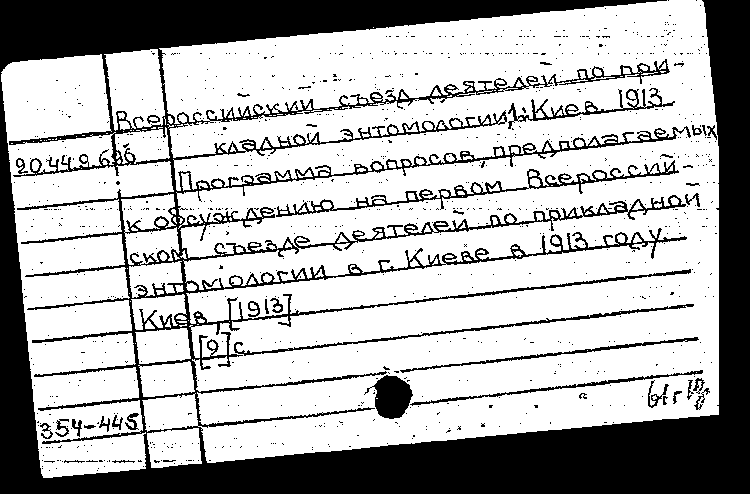 Всероссийский съезд деятелей по при-
кладной энтомологии, 1. Киев. 1913
20.44.9.696
Программа вопросов, предполагаемых
к обсуждению на первом Всероссий-
ском съезде деятелей по прикладной
энтомологии в г. Киеве в 1913 году.
Киев, [1913].
[9] с.
354-445